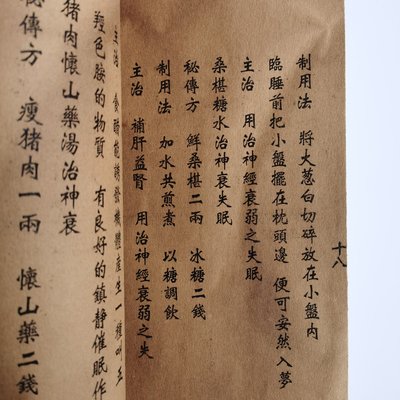 十八
制用法　將大蔥白切碎放在小盤內
臨睡前把小盤擺在枕頭邊　便可安然入夢
主治　用治神經衰弱之失眠
桑椹糖水治神衰失眠
秘傳方　鮮桑椹二兩　冰糖二錢
制用法　加水共煎煮　以糖調飲
主治　補肝益腎　用治神經衰弱之失
主治　食醋能誘發機體產生一種叫五
羥色胺的物質　有良好的鎮静催眠作
猪肉懷山藥湯治神衰
秘傳方　瘦猪肉一兩　懷山藥二錢